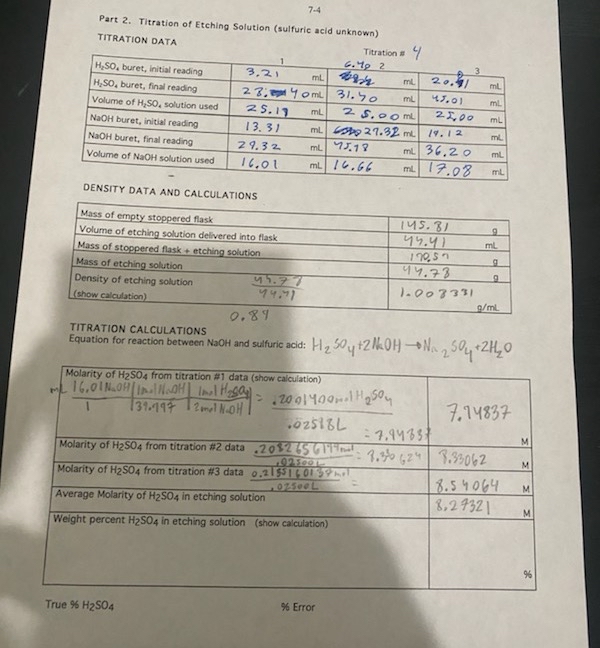 7-4
Part 2. Titration of Etching Solution (sulfuric acid unknown)
TITRATION DATA
Titration # 4
1 2 3
H₂SO₄ buret, initial reading 3.21 mL 6.40 mL 20. mL
H₂SO₄ buret, final reading 28. 40 mL 31.40 mL 45.01 mL
Volume of H₂SO₄ solution used 25.19 mL 25.00 mL 25.00 mL
NaOH buret, initial reading 13.31 mL 27.32 mL 19.12 mL
NaOH buret, final reading 29.32 mL mL 36.20 mL
Volume of NaOH solution used 16.01 mL 16.66 mL 17.08 mL
DENSITY DATA AND CALCULATIONS
Mass of empty stoppered flask 145.81 g
Volume of etching solution delivered into flask 44.41 mL
Mass of stoppered flask + etching solution g
Mass of etching solution g
Density of etching solution
(show calculation) g/mL
0.89
TITRATION CALCULATIONS
Equation for reaction between NaOH and sulfuric acid: H₂SO₄+2NaOH→Na₂SO₄+2H₂O
Molarity of H2SO4 from titration #1 data (show calculation)
mL 16.01 NaOH | 1mol NaOH | 1mol H₂SO₄ = .2001400mol H₂SO₄
1 | 39.997 | 2mol NaOH .02518L
7.94837 M
Molarity of H2SO4 from titration #2 data
.02500L 8.33062 M
Molarity of H2SO4 from titration #3 data
.02500L = 8.54064 M
Average Molarity of H2SO4 in etching solution 8.27321 M
Weight percent H2SO4 in etching solution (show calculation)
%
True % H2SO4 % Error